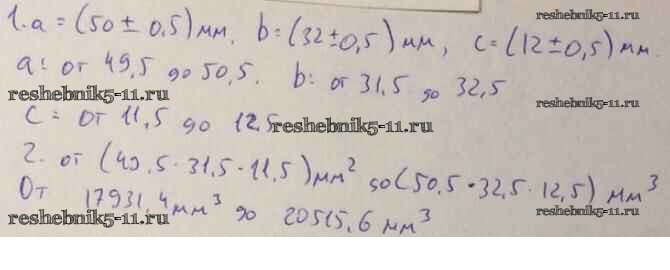 1. a = (50 ± 0,5) мм, b = (32 ± 0,5) мм, c = (12 ± 0,5) мм.
reshebnik5-11.ru
a: от 49,5 до 50,5. b: от 31,5 до 32,5
reshebnik5-11.ru
reshebnik5-11.ru
c = от 11,5 до 12,5
reshebnik5-11.ru
2. от (49,5 · 31,5 · 11,5) мм² до (50,5 · 32,5 · 12,5) мм³
От 17931,4 мм³ до 20515,6 мм³
reshebnik5-11.ru
reshebnik5-11.ru